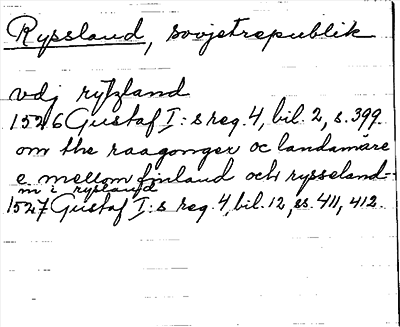 Ryssland, sovjetrepublik
vdj ryszland
1526 Gustaf I:s reg. 4, bil. 2, s. 399.
om the raagonger oc landamäre
e mellom finland och rysseland-
m i ryssland
1527 Gustaf I:s reg. 4, bil. 12, ss. 411, 412.